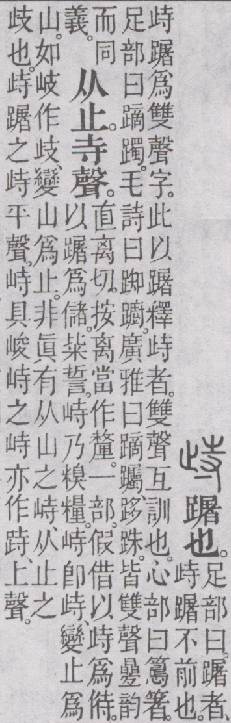 歭 躇也。
足部曰。躇者、
歭躇不前也。
歭躇爲雙聲字。此以躇釋歭者。雙聲互訓也。心部曰篙箸。
足部曰蹢躅。毛詩曰踟躕。廣雅曰蹢䠱、跢跦。皆雙聲曡韵
而同
義。
从止寺聲。
直离切。按离當作釐。一部。假借以歭爲偫。
以躇爲儲。粊誓。峙乃糗糧。峙卽歭、變止爲
山。如岐作歧、變山爲止。非眞有从山之峙、从止之
歧也。歭躇之歭平聲、峙具峻峙之峙亦作跱、上聲。